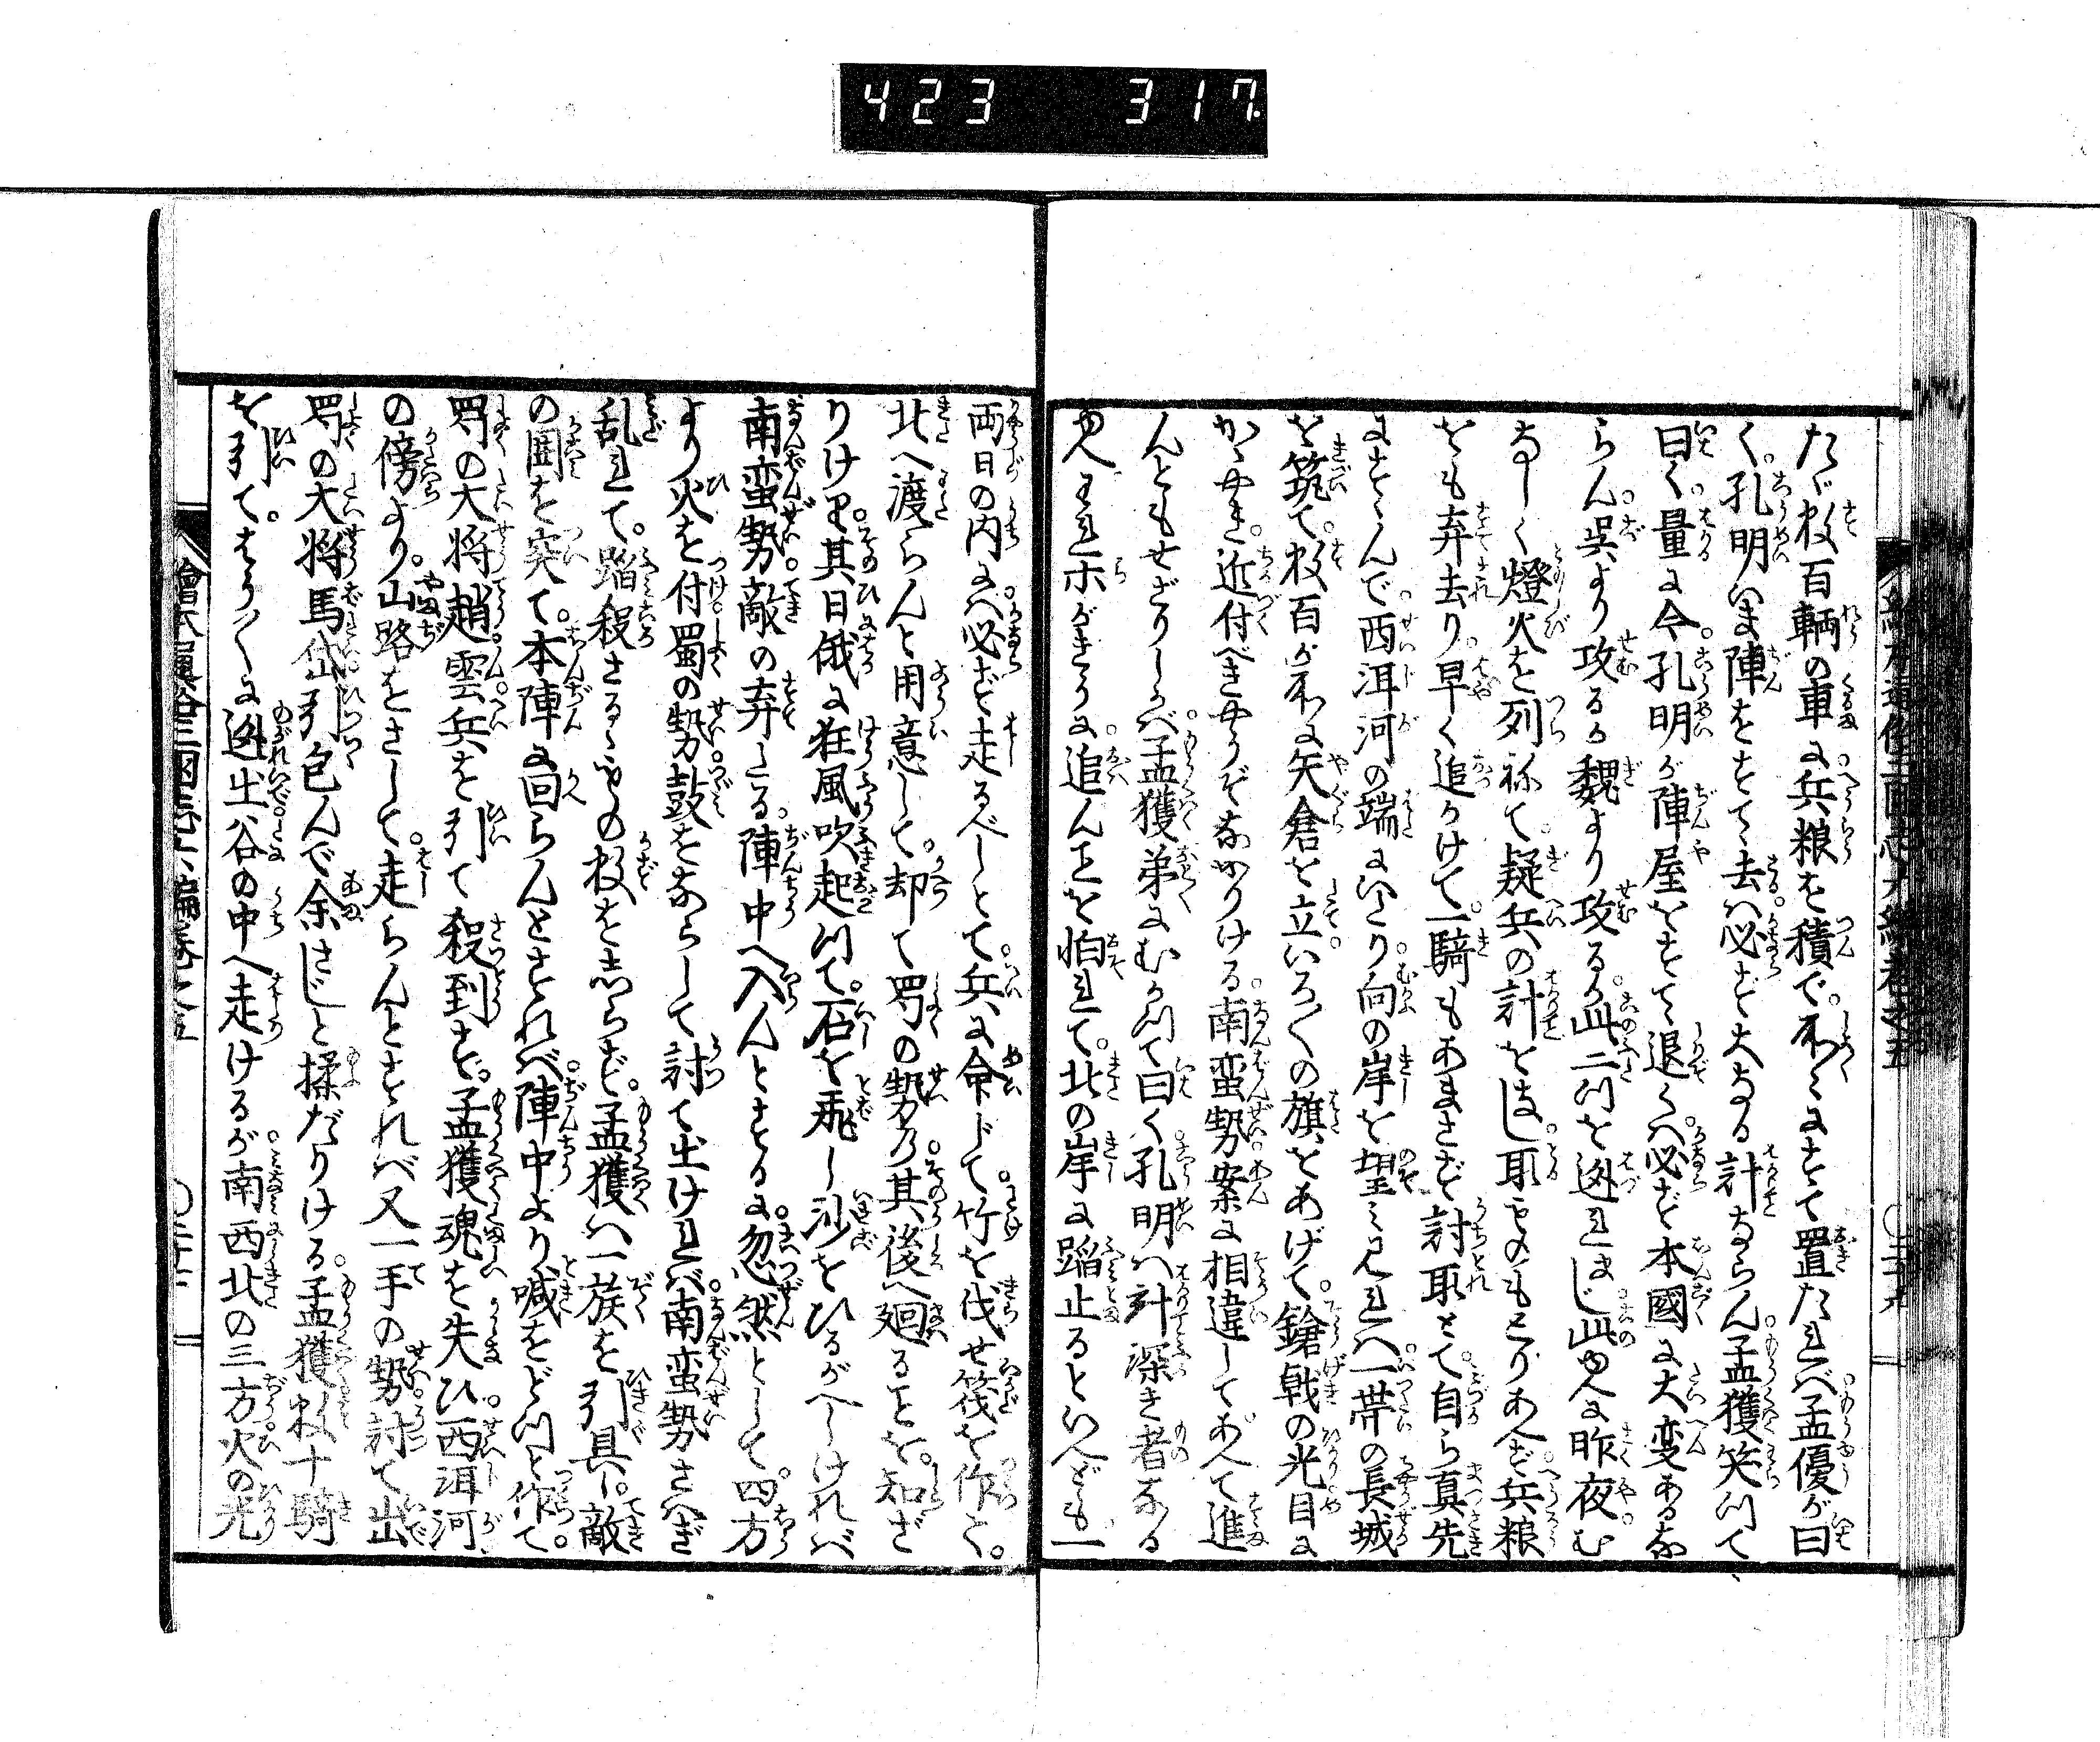 423 317
たゞ数百輌の車に兵粮を積で。所々にすて置たれバ孟優が曰
く。孔明いま陣をすてゝ去ハ必ず大なる計ならん孟獲笑つて
曰く。量に今孔明が陣屋をすて退くハ必ず本國に大変あるな
らん呉より攻るか魏より攻るか此二つを迯れじ此ゆへに昨夜む
なしく燈火を列ねて疑兵の計をほどこし取ものもとりあへず兵粮
をも弃去り早く追かけて一騎もあまさず討取とて自ら真先
にすゝんで西洱河の端にいたり向の岸を望ミ見れハ一帯の長城
を筑て。数百か所に矢倉を立いろ〱の旗をあげて鎗戟の光目に
かゝやき近付べきやうぞなかりける南蛮勢案に相違してあへて進
んともせざりしかバ孟獲弟にむかつて曰く孔明ハ計深き者なる
ゆへわれホがきうに追んことを怕れて。北の岸に蹈止るといへども一
両日の内にハ必ず走るべしとて兵に命じて竹を伐せ筏を作て。
北へ渡らんと用意して。却て蜀の勢乃其後へ廻ることを。知ざ
りけり其日俄に狂風吹起つて。石を飛し沙をひるがへしけれバ
南蛮勢敵の弃たる陣中へ入んとするに忽然として四方
より火を付蜀の勢鼓をならして討て出けれバ南蛮勢さハぎ
乱れて。蹈殺さるゝもの数を志らず孟獲ハ一族を引具し敵
の囲を突て。本陣に回らんとすれバ陣中より喊をどつと作て。
蜀の大将趙雲兵を引て殺到す。孟獲魂を失ひ西洱河
の傍より。山路をさして。走らんとすれバ又一手の勢討て出
蜀の大将馬岱引包んで余さじと揉だりける。孟獲数十騎
を引て。すう〱に迯出谷の中へ走けるが南西北の三方火の光